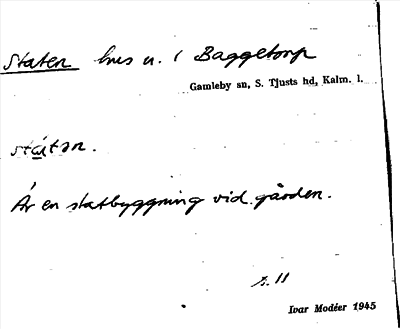 Staten hus u. / Baggetorp
Gamleby sn, S. Tjusts hd, Kalm. l.
státən.
Är en statbyggning vid gården.
s. 11
Ivar Modéer 1945